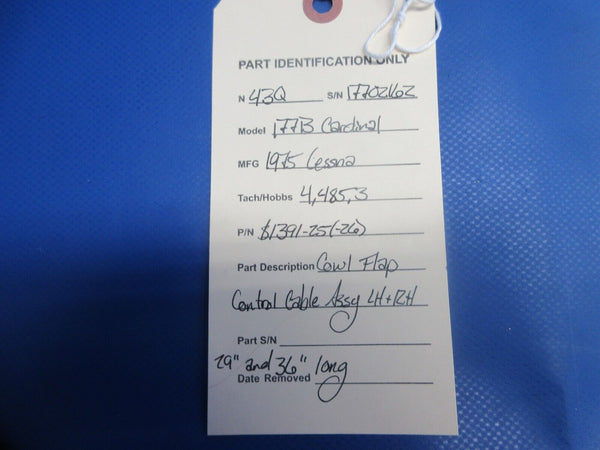 PART IDENTIFICATION ONLY
N 43Q S/N 17702162
Model 177B Cardinal
MFG 1975 Cessna
Tach/Hobbs 4,485.3
P/N S1391-25(-26)
Part Description Cowl Flap
Control Cable Assy LH + RH
Part S/N
29" and 36" long
Date Removed